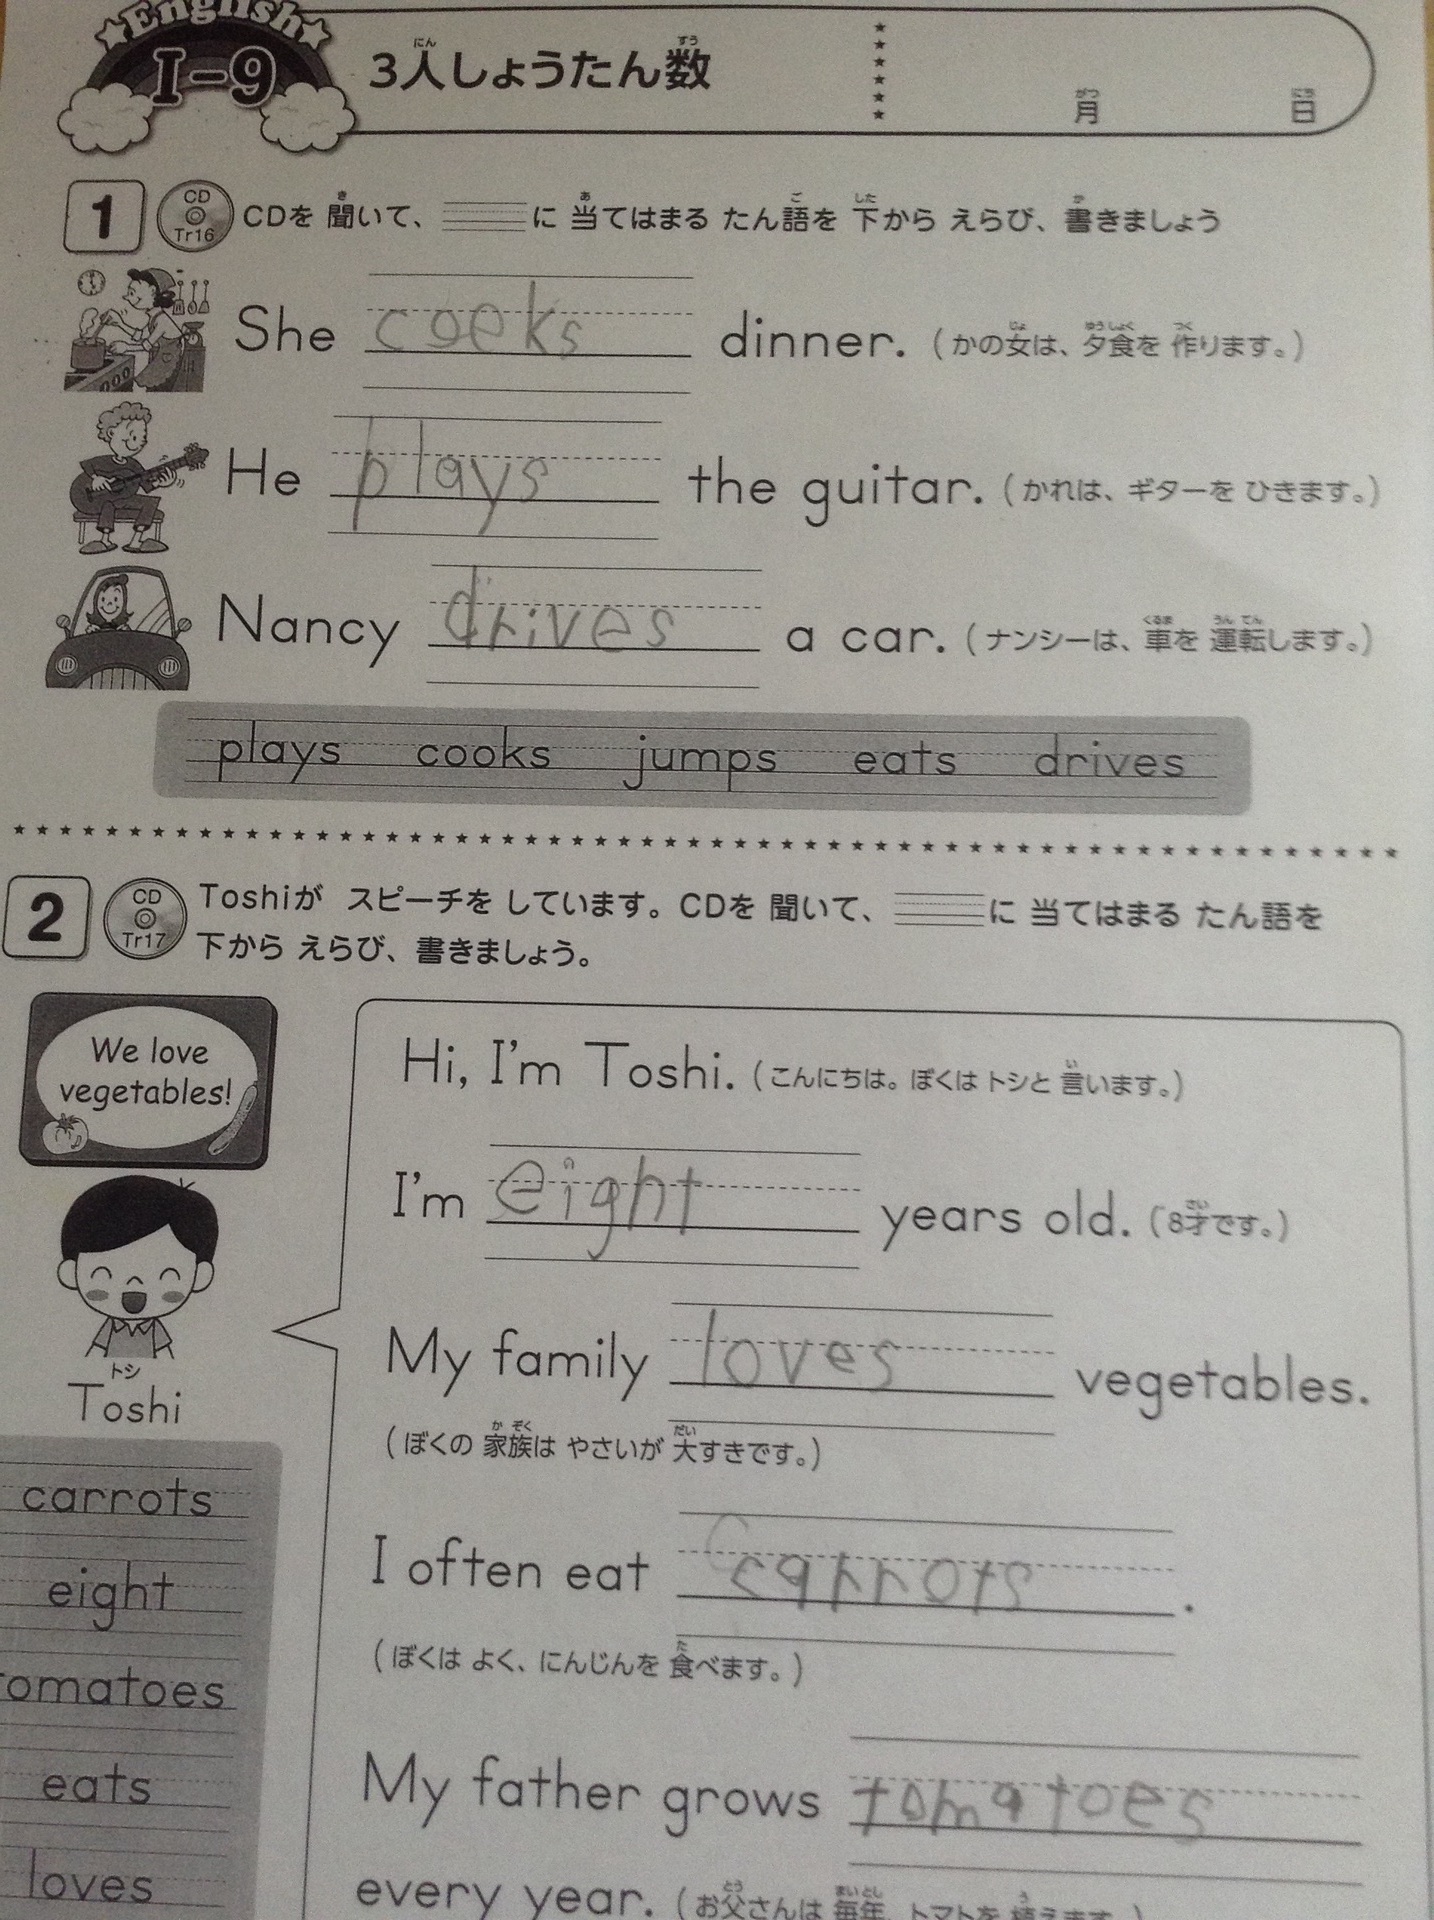 English
I-9 3人しょうたん数 月 日
にん すう がつ にち
1 CD Tr16 CDを 聞いて、 に 当てはまる たん語を 下から えらび、書きましょう
She coeks dinner. (かの女は、夕食を 作ります。)
He plays the guitar. (かれは、ギターを ひきます。)
Nancy drives a car. (ナンシーは、車を 運転します。)
plays cooks jumps eats drives
2 CD Tr17 Toshiが スピーチを しています。CDを 聞いて、 に 当てはまる たん語を
下から えらび、書きましょう。
We love
vegetables!
トシ
Toshi
Hi, I'm Toshi. (こんにちは。ぼくは トシと 言います。)
I'm eight years old. (8才です。)
My family loves vegetables.
(ぼくの 家族は やさいが 大すきです。)
I often eat carrots.
(ぼくは よく、にんじんを 食べます。)
My father grows tomatoes
every year. (お父さんは 毎年、トマトを 植えます。)
carrots
eight
tomatoes
eats
loves